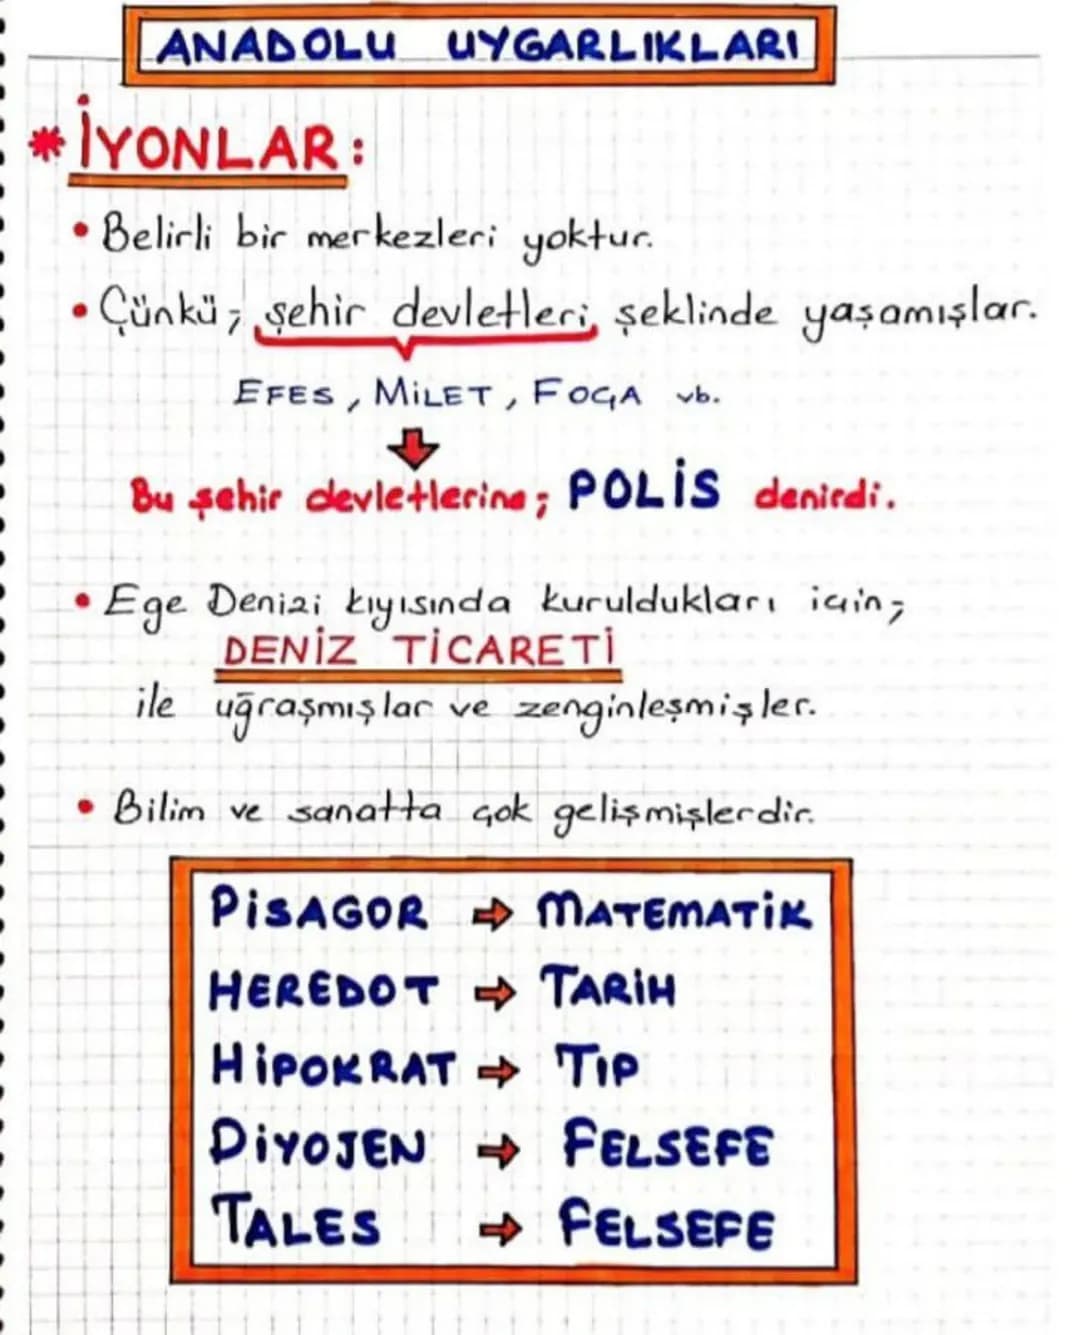 ANADOLU UYGARLIKLARI
* İYONLAR:
• Belirli bir merkezleri yoktur.
• Çünkü; şehir devletleri şeklinde yaşamışlar.
EFES, MİLET, FOÇA vb.
Bu şehir devletlerine; POLİS denirdi.
• Ege Denizi kıyısında kuruldukları için;
DENİZ TİCARETİ
ile uğraşmışlar ve zenginleşmişler.
• Bilim ve sanatta çok gelişmişlerdir.
PİSAGOR ⇒ MATEMATİK
HEREDOT ⇒ TARİH
HİPOKRAT ⇒ TIP
DİYOJEN ⇒ FELSEFE
TALES ⇒ FELSEFE